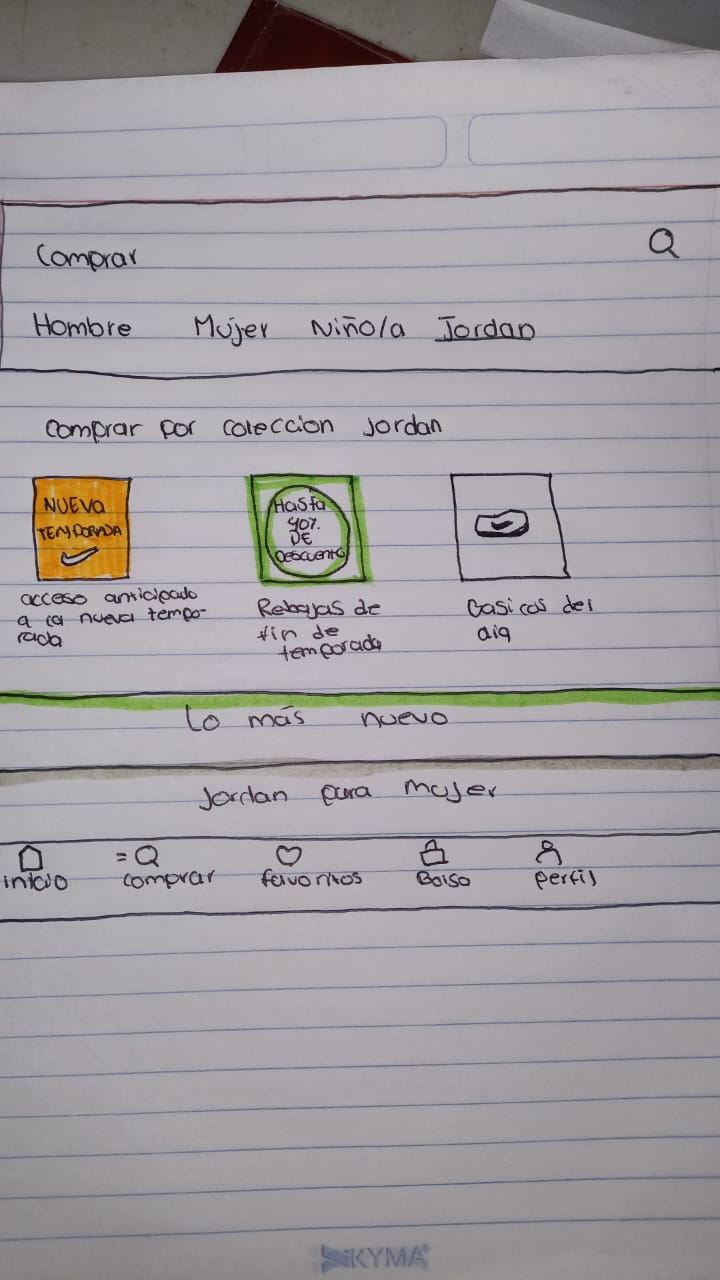 Comprar
Hombre Mujer Niño/a Jordan
Comprar por coleccion Jordan
NUEVA
TEMPORADA
acceso anticipado
a la nueva tempo-
rada
Hasta
40%
DE
Descuento
Rebajas de
fin de
temporada
Basicos del
dia
Lo más nuevo
Jordan para mujer
inicio comprar favoritos Bolso perfil
KYMA